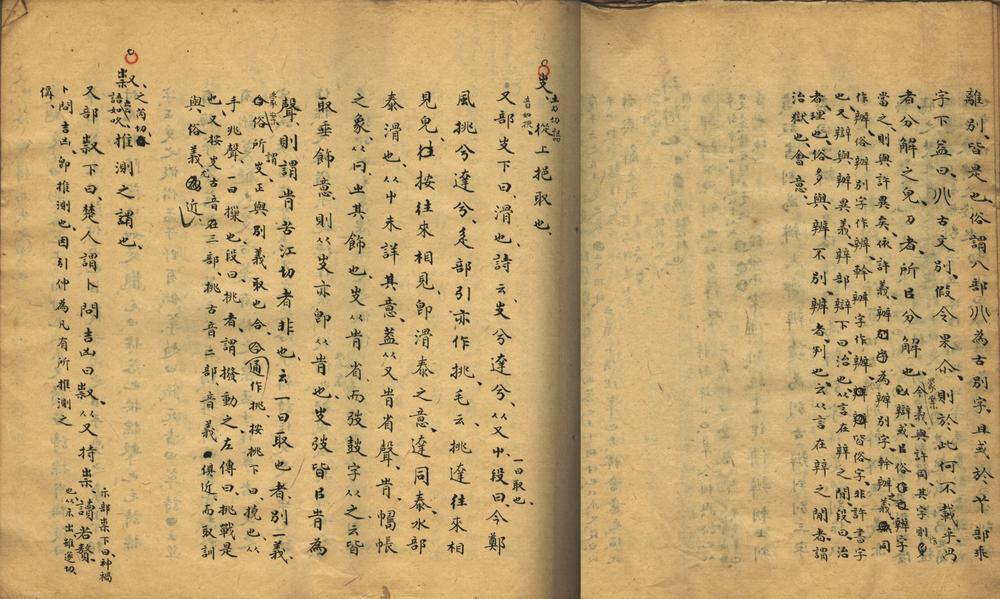 離別、皆是也、俗謂八部𠔁為古別字、且或於𠁥部乖
字下益曰、𠔁古文別、假令果尒、則於此何不載乎、冎
者分解之皃、刀者、所㠯分解也、
當之、則與許異矣、依許義、辧為辧別字、幹辦義同
作辦、俗辦別字作辨、幹辦字作辦、皆俗字、非許書字
也、又辯與辦異義、辡部辯下曰、治也、从言在辡之閒、段曰、治
者、理也、俗多與辨不別、辨者、判也、云从言在辡之閒者、謂
治獄也、會意、
㕞、
土刀切
從上挹取也、
一曰取也、
又部㕞下曰、滑也、詩云、㕞兮達兮、从又屮、段曰、今鄭
風挑兮達兮、辵部引亦作挑、毛云、挑達往來相
見皃、按往來相見、即滑泰之意、達同泰、水部
泰、滑也、从屮未詳其意、蓋从又肯省聲、肯、幬帳
之象、从冂、㞢其飾也、㕞从肯省、而弢鼓字从之、云皆
取垂飾意、則从㕞亦即从肯也、㕞弢皆㠯肯為
聲、則謂肯苦江切者、非也、云一曰取也者、別一義、
俗所謂㕞、正與別義取也合、通作挑、按挑下曰、撓也、从
手、兆聲、一曰摷也、段曰、挑者、謂撥動之、左傳曰、挑戰是
也、又按㕞古音在三部、挑古音二部、音義俱近、而取訓
與俗義尤近、
𣝔、
之芮切
語如吹、
推測之謂也、
又部𣝔下曰、楚人謂卜問吉凶曰𣝔、从又持祟、讀若贅、
示部祟下曰、神禍
也、从示出、雖遂切
卜問吉凶、即推測也、因引伸為凡有所推測之
偁、